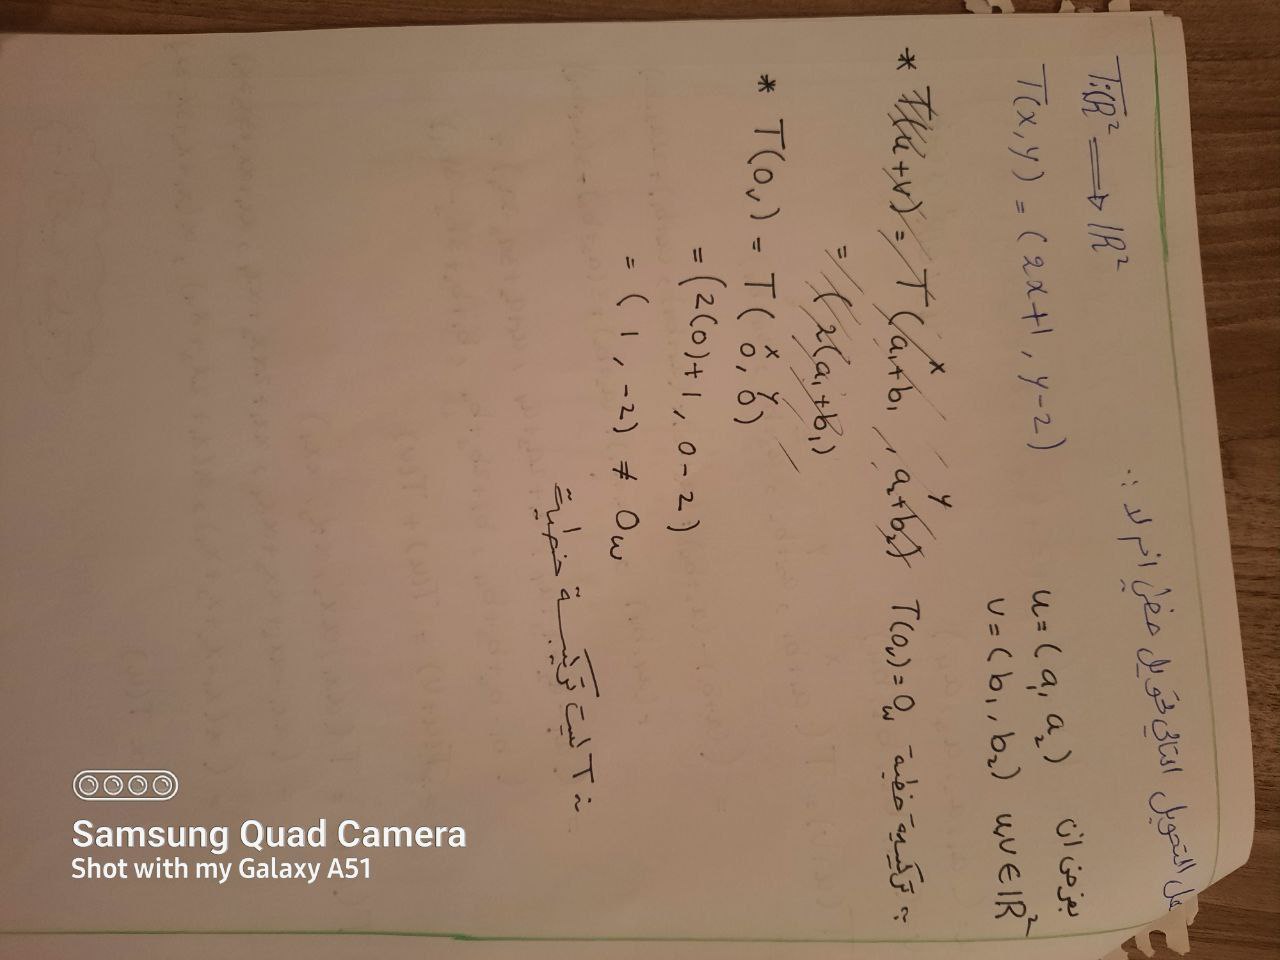 هل التحويل التالي تحويل خطي ام لا :.
T:R² ⟹ IR²
T(x,y) = (2x+1, y-2)
بفرض ان u=(a₁, a₂)
v=(b₁, b₂) u,v ∈ IR²
* T(u+v) = T(a₁+b₁, a₂+b₂) x y
T(0ᵥ) = 0w تركيبة خطية
= (2(a₁+b₁)
* T(0ᵥ) = T(0, 0) x y
= (2(0)+1, 0-2)
= (1, -2) ≠ 0w
∴ T ليست تركيبة خطية
Samsung Quad Camera
Shot with my Galaxy A51